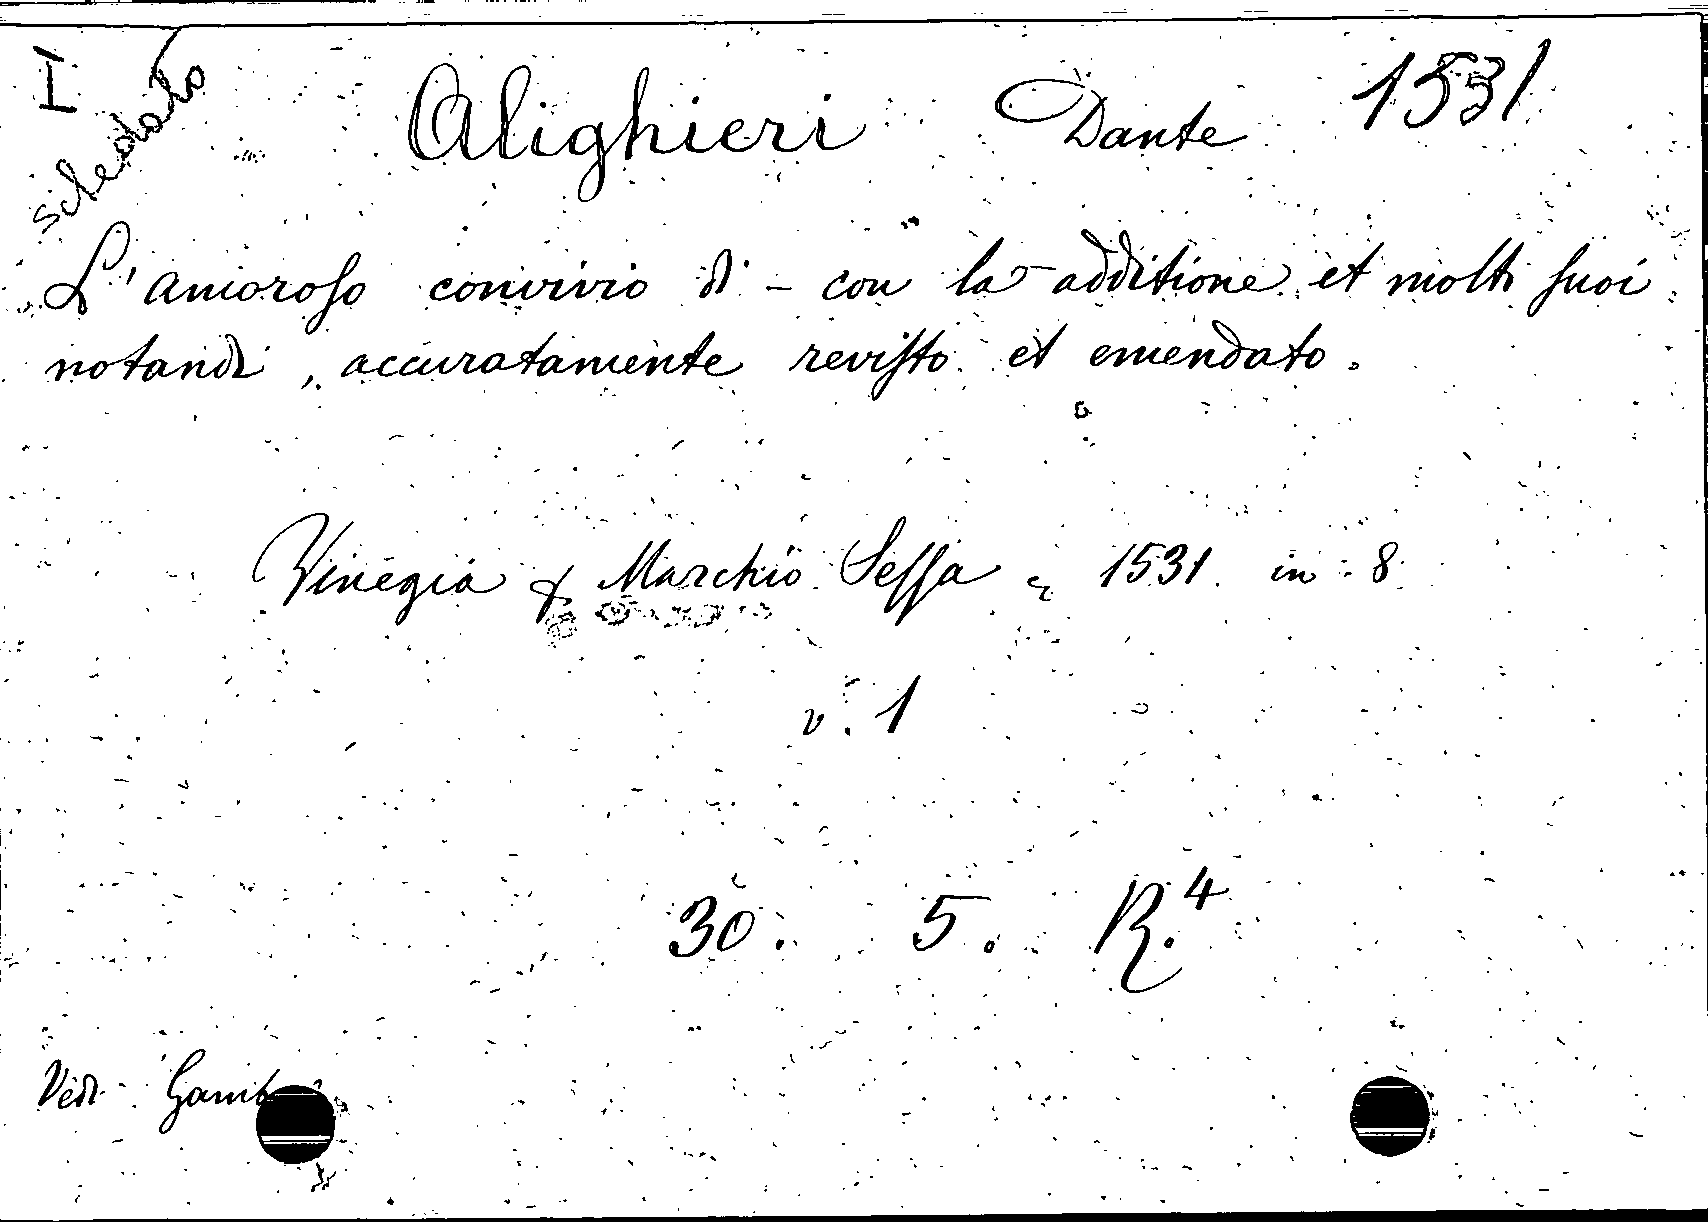 I
schedato
Alighieri Dante 1531
L'amoroso convivio di - con la additione et molti suoi
notandi, accuratamente revisto et emendato.
Vinegia Marchio Sessa 1531. in 8
v. 1
30. 5. R.4
Vedi Gamb